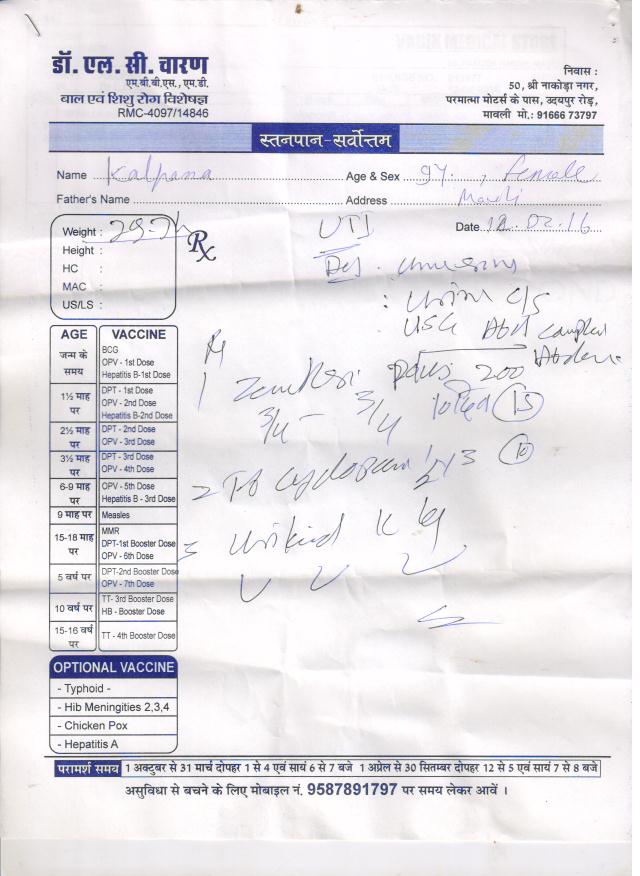 डॉ. एल. सी. चारण
एम.बी.बी.एस., एम.डी.
बाल एवं शिशु रोग विशेषज्ञ
RMC-4097/14846
निवास :
50, श्री नाकोड़ा नगर,
परमात्मा मोटर्स के पास, उदयपुर रोड़,
मावली मो.: 91666 73797
स्तनपान-सर्वोत्तम
Name Kalpana Age & Sex 9Y. , female
Father's Name Address
Date 12.02.16
Weight :
Height :
HC :
MAC :
US/LS :
Rx
UTI
: Urine C/S
USG Abd
AGE VACCINE
जन्म के समय BCG
OPV - 1st Dose
Hepatitis B-1st Dose
1½ माह पर DPT - 1st Dose
OPV - 2nd Dose
Hepatitis B-2nd Dose
2½ माह पर DPT - 2nd Dose
OPV - 3rd Dose
3½ माह पर DPT - 3rd Dose
OPV - 4th Dose
6-9 माह पर OPV - 5th Dose
Hepatitis B - 3rd Dose
9 माह पर Measles
15-18 माह पर MMR
DPT-1st Booster Dose
OPV - 6th Dose
5 वर्ष पर DPT-2nd Booster Dose
OPV - 7th Dose
10 वर्ष पर TT- 3rd Booster Dose
HB - Booster Dose
15-16 वर्ष पर TT - 4th Booster Dose
200
3/4 - 3/4 15
10
OPTIONAL VACCINE
- Typhoid -
- Hib Meningities 2,3,4
- Chicken Pox
- Hepatitis A
परामर्श समय 1 अक्टुबर से 31 मार्च दोपहर 1 से 4 एवं सायं 6 से 7 बजे 1 अप्रेल से 30 सितम्बर दोपहर 12 से 5 एवं सायं 7 से 8 बजे
असुविधा से बचने के लिए मोबाइल नं. 9587891797 पर समय लेकर आवें ।